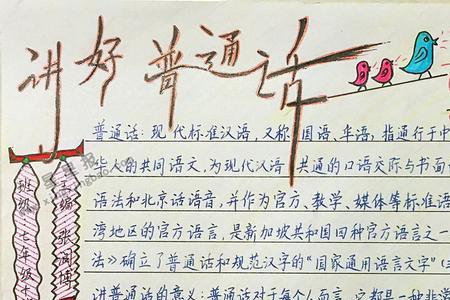 讲好普通话
普通话：现代标准汉语，又称国语、华语，指通行于中
华人的共同语文，为现代汉语共通的口语交际与书面
语法和北京话语音，并作为官方、教学、媒体等标准语
湾地区的官方语言，是新加坡共和国四种官方语言之一
法》确立了普通话和规范汉字的“国家通用语言文字”（
讲普通话的意义：普通话对于每个人而言，它都是一种非常
班级
七年级十
主编
张润博